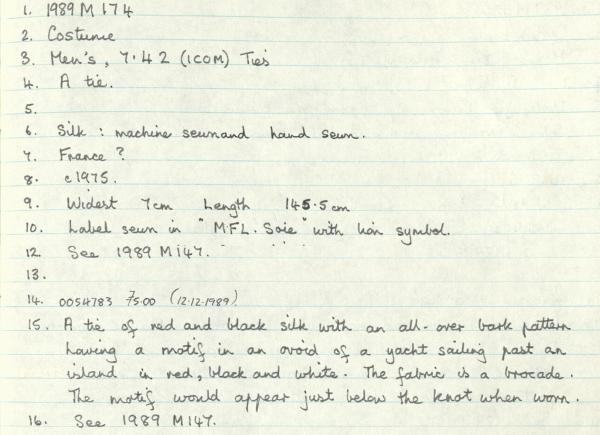 1. 1989 M 174
2. Costume
3. Men's, 7.42 (ICOM) Ties
4. A tie.
5.
6. Silk : machine sewn and hand sewn.
7. France ?
8. c1975.
9. Widest 7cm Length 145.5cm
10. Label sewn in "M.F.L. Soie" with lion symbol.
12. See 1989 M147.
13.
14. 0054783 75.00 (12.12.1989)
15. A tie of red and black silk with an all-over bark pattern
having a motif in an ovoid of a yacht sailing past an
island in red, black and white. The fabric is a brocade.
The motif would appear just below the knot when worn.
16. See 1989 M147.